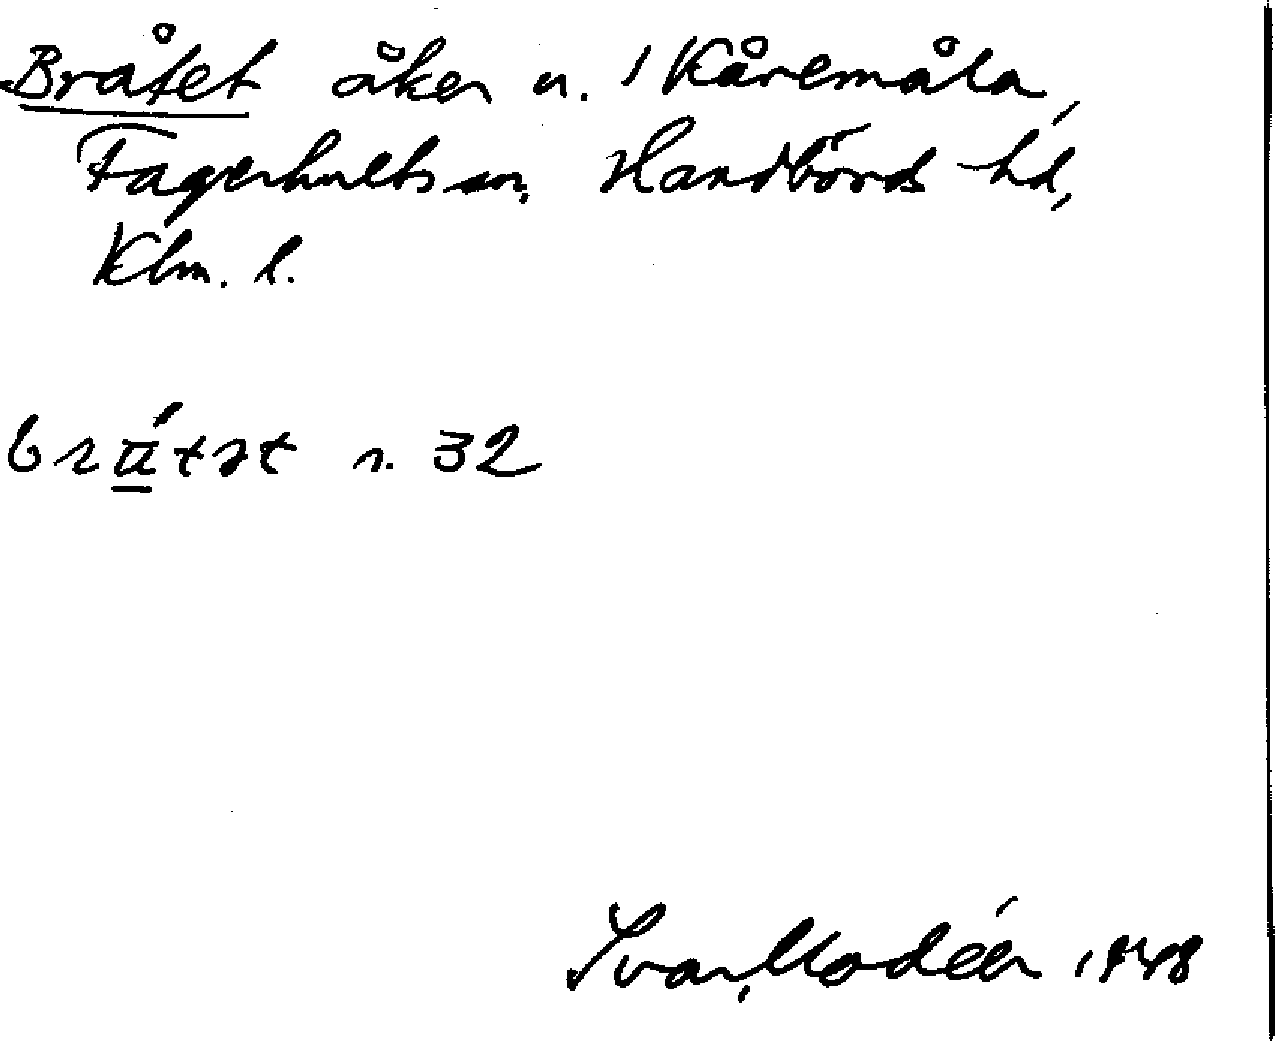 Bråtet åker n. 1 Kåremåla,
Fagerhults sn, Handbörds hd,
Klm. l.
n. 32
Ivar Modéer 1948